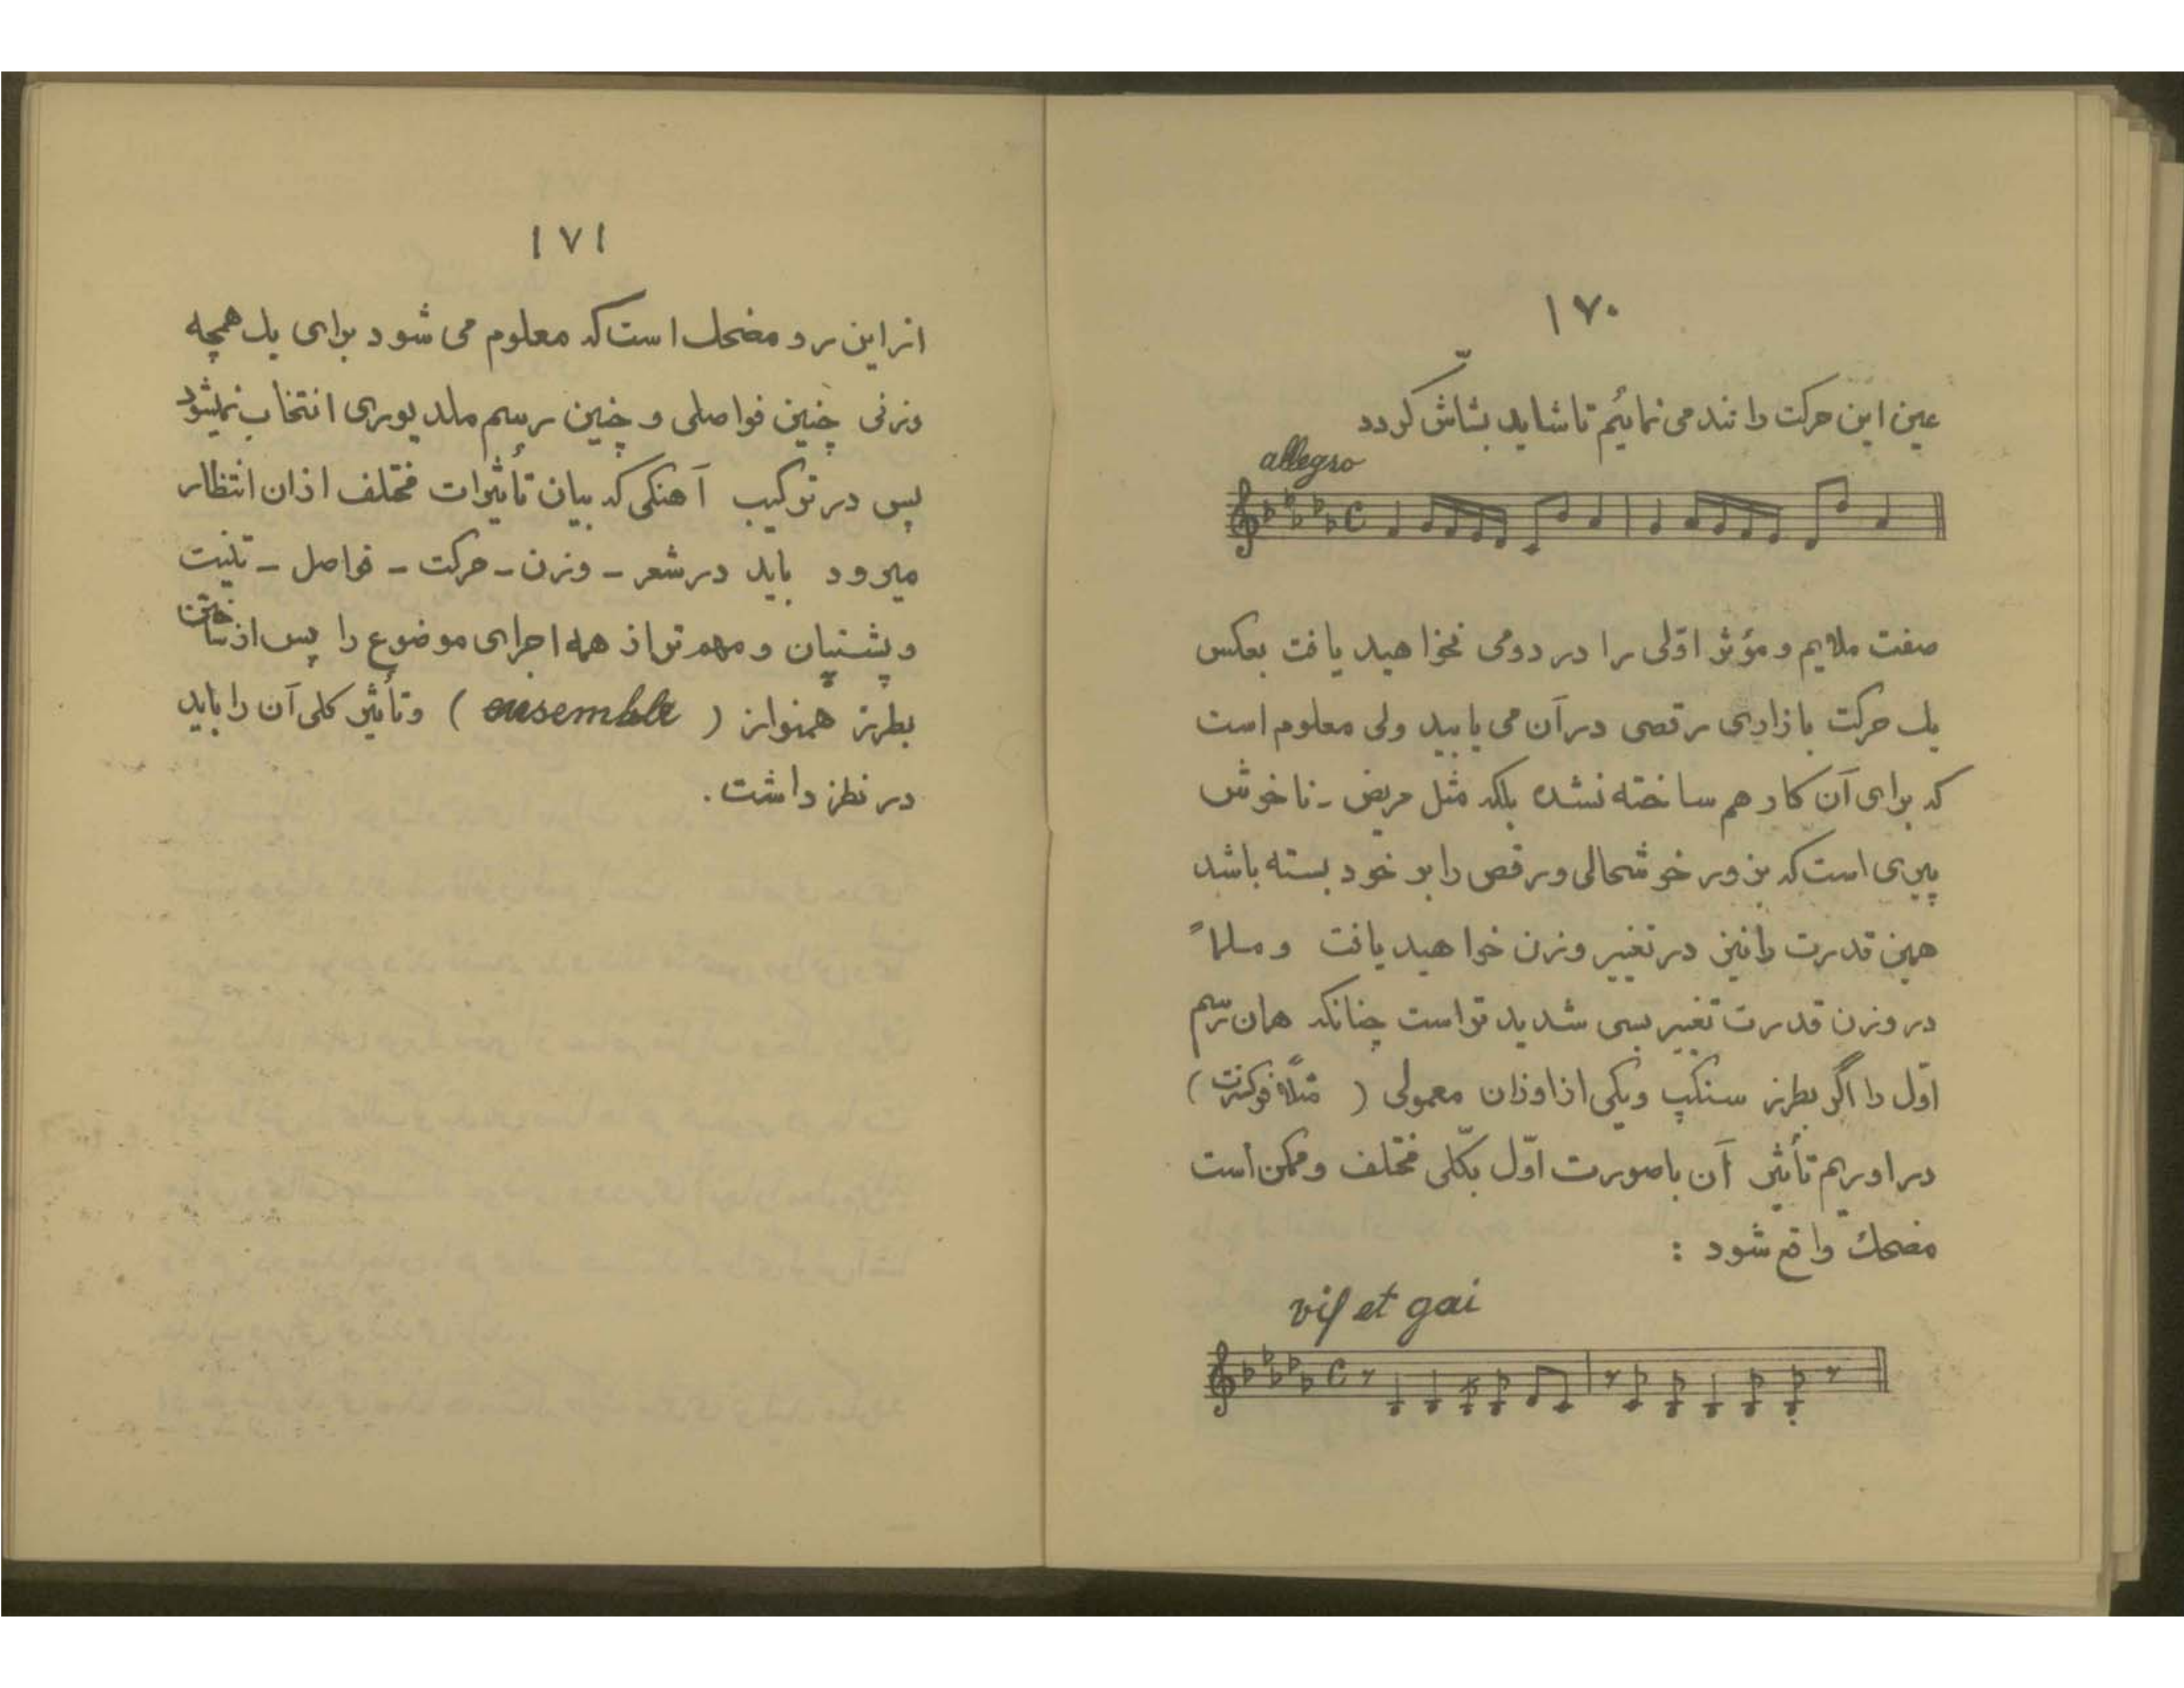 ۱۷۰
عین این حرکت را تند می نمائیم تا شاید بشّاش گردد
allegro
صفت ملایم و مؤثر اوّلی را در دومی نخواهید یافت بعکس
یك حرکت بازاری رقصی در آن می یابید ولی معلوم است
که برای آن کار هم ساخته نشده بلکه مثل مریض - ناخوش
پیری است که بزور خوشحالی و رقص را بر خود بسته باشد
همین قدرت را نیز در تغییر وزن خواهید یافت و مسلماً
در وزن قدرت تغییر بسی شدید تر است چنانکه همان رسم
اوّل را اگر بطرز سنکپ و یکی از اوزان معمولی ( مثلاً فوکسترت )
در اوریم تأثیر آن با صورت اوّل بکلّی مختلف و ممکن است
مضحك واقع شود :
vif et gai
۱۷۱
از این رو مضحك است که معلوم می شود برای یك همچه
وزنی چنین فواصلی و چنین رسم ملدیوری انتخاب نمیشود
پس در ترکیب آهنگی که بیان تأثیرات مختلف از ان انتظار
میرود باید در شعر - وزن - حرکت - فواصل -
و پشتیبان و مهم تر از همه اجرای موضوع را پس از ساختن
بطرز همنواز ( ensemble ) و تأثیر کلی آن را باید
در نظر داشت .